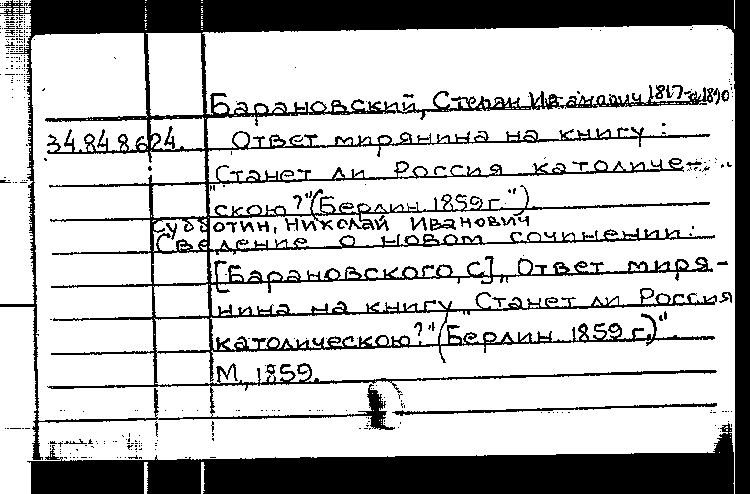 Барановский, Степан Иванович, 1817-1890
34.84.8.624. Ответ мирянина на книгу:
"Станет ли Россия католиче-
скою?" (Берлин 1859 г.").
Субботин, Николай Иванович
Сведение о новом сочинении:
[Барановского, С.] "Ответ миря-
нина на книгу "Станет ли Россия
католическою?" (Берлин. 1859 г.)".
М., 1859.